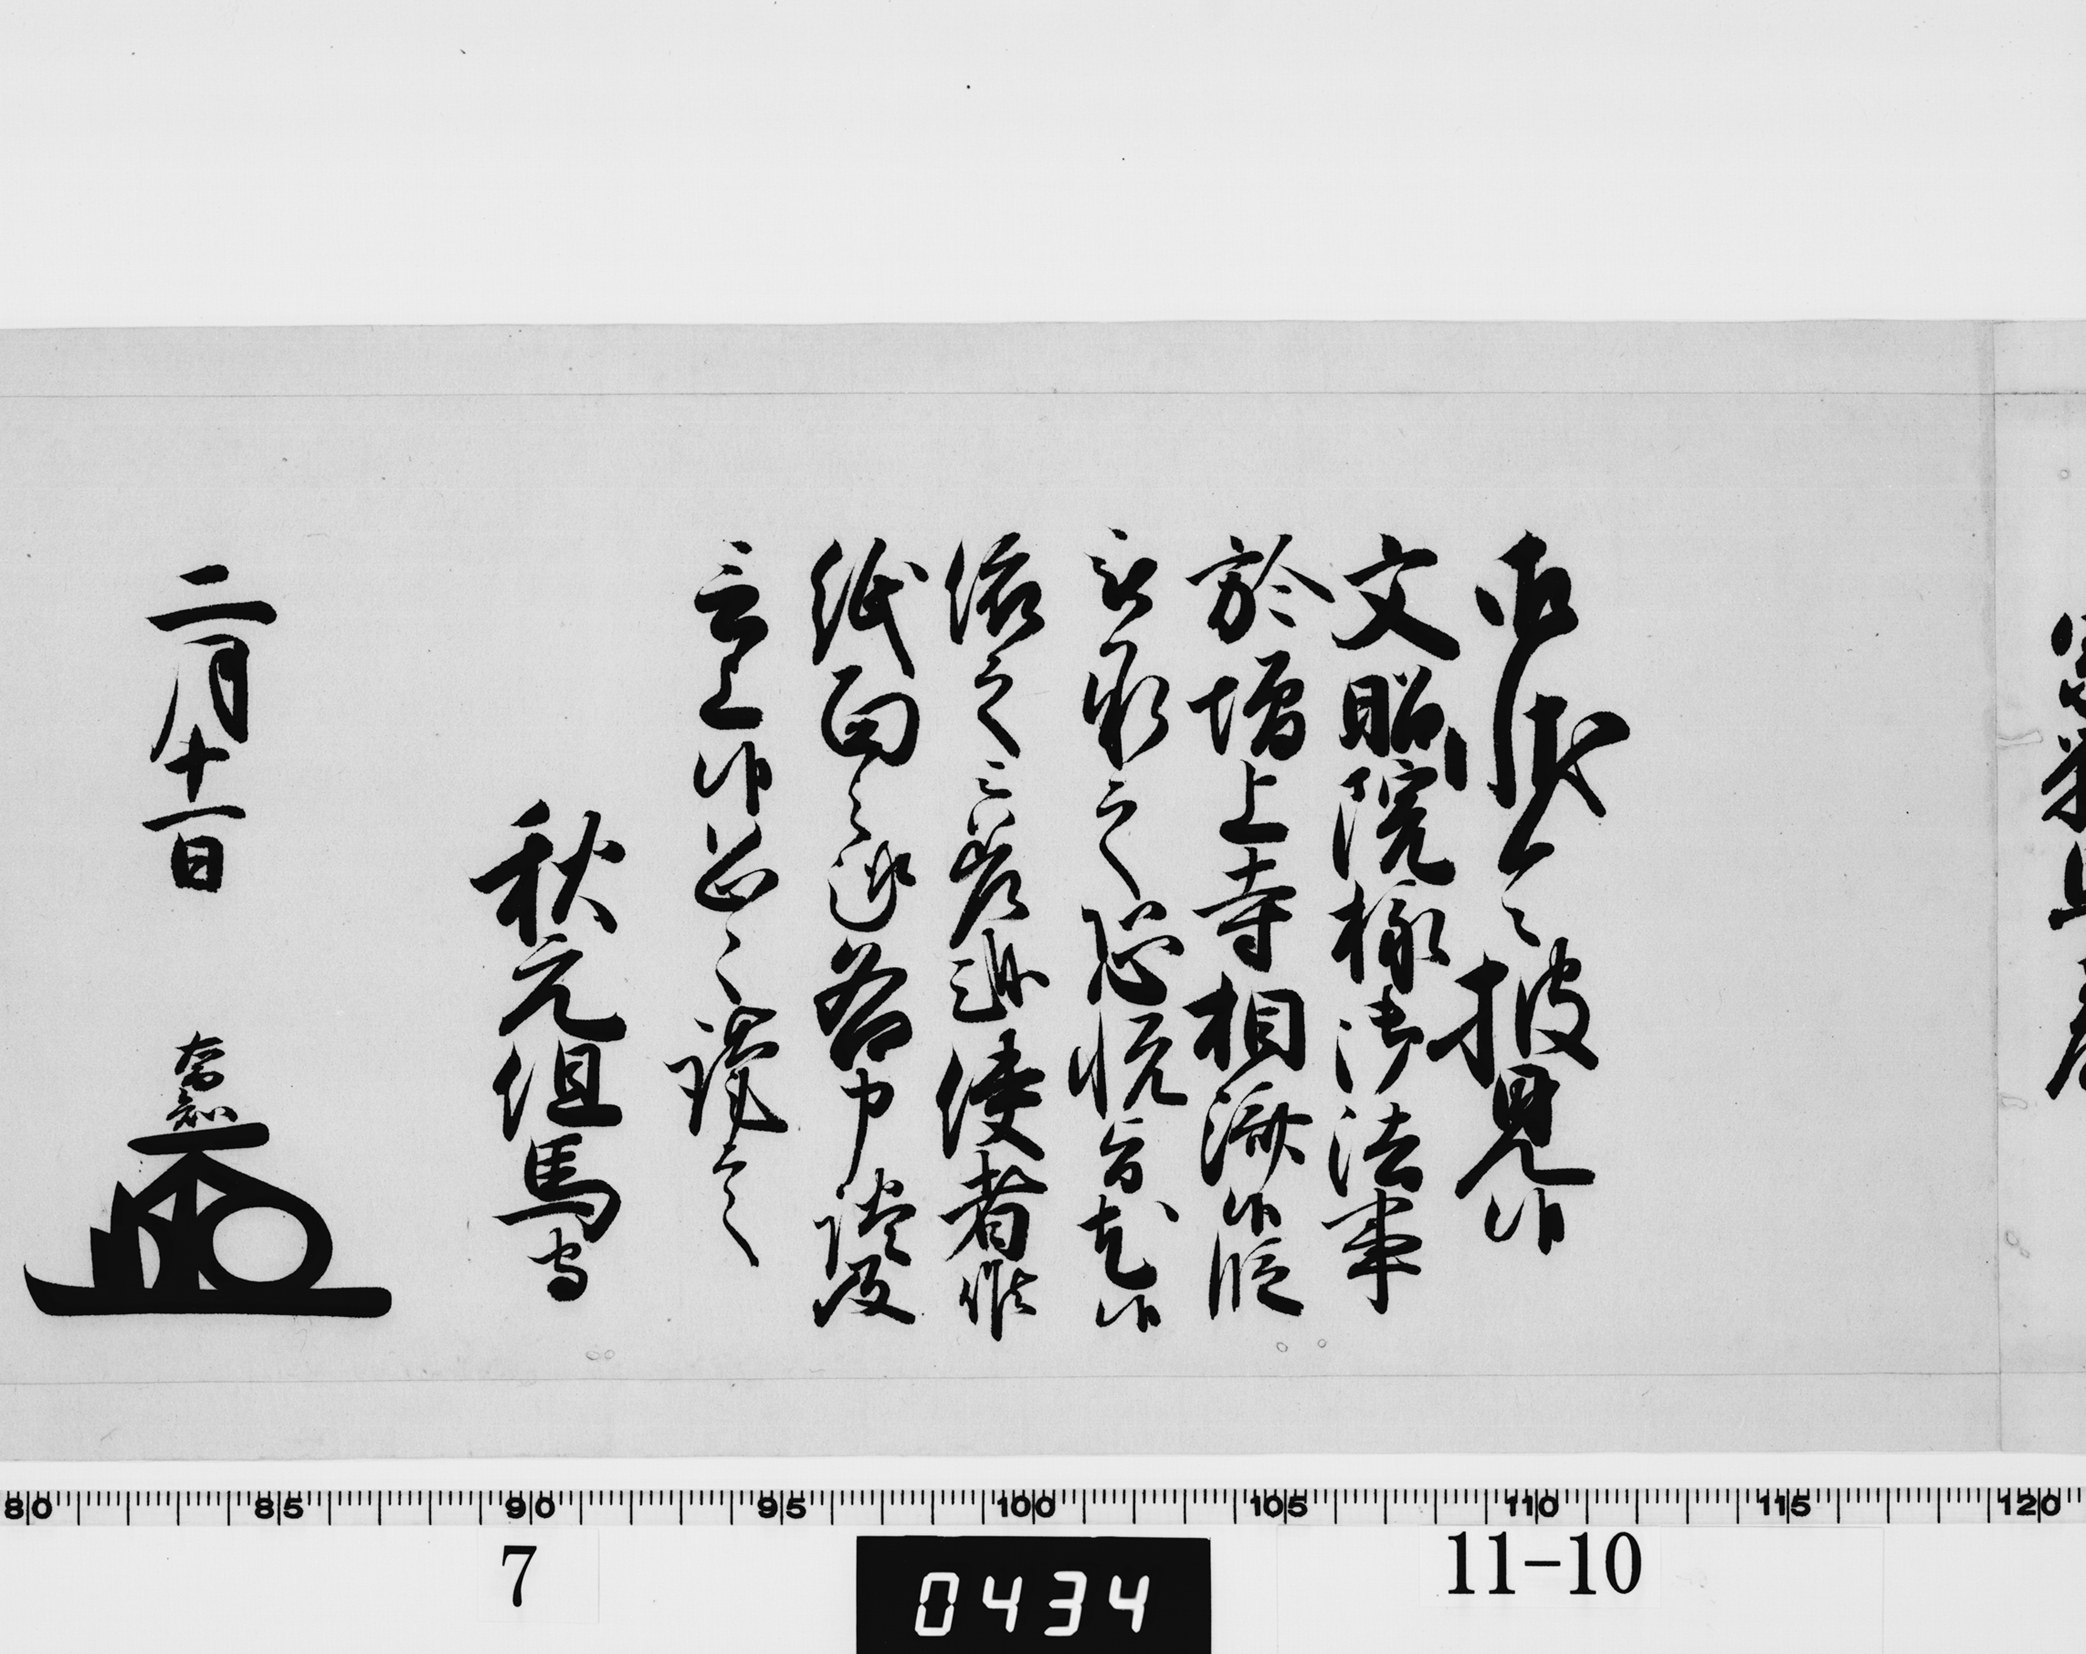 御状令披見候
文昭院様御法事
於増上寺相済候段
被承之恐悦旨尤候
依之被差越使者候
紙面之趣各申談及
言上候恐々謹言
秋元但馬守
二月十一日
喬知
80 85 90 95 100 105 110 115 120
7
0434
11-10